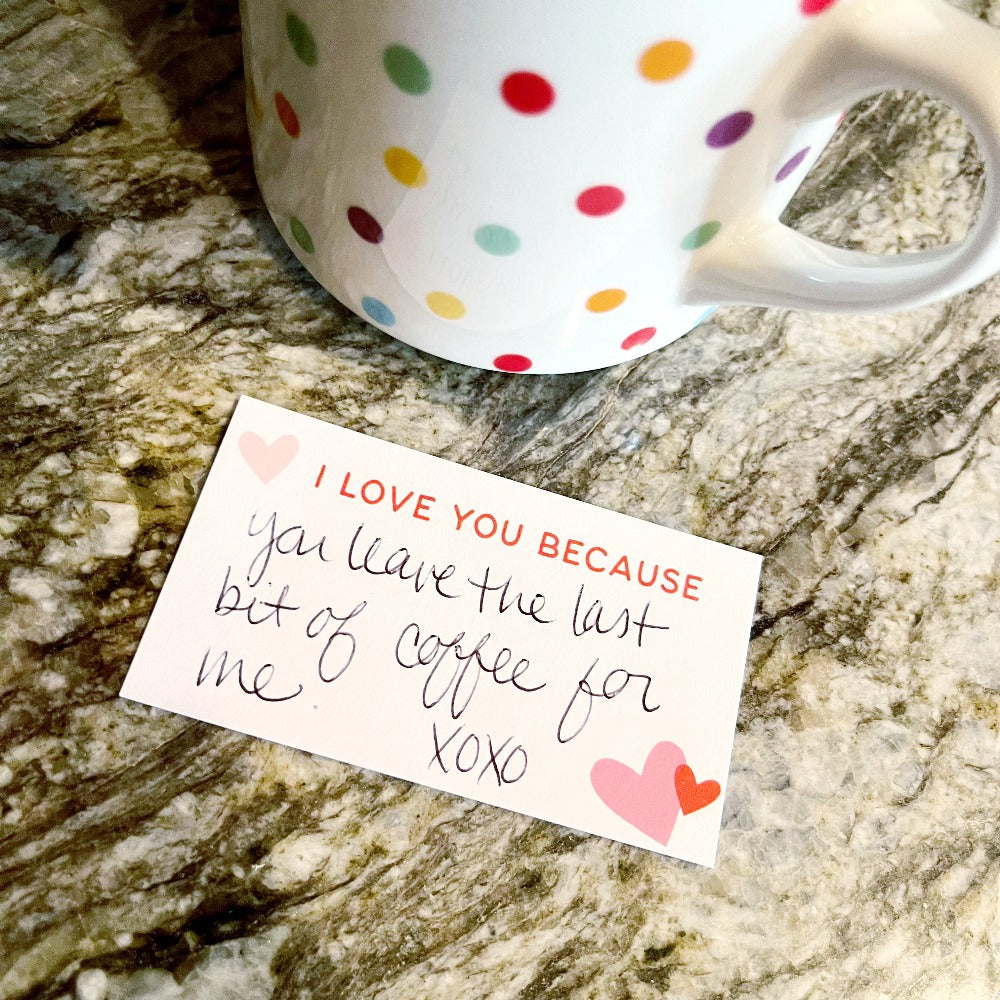 I LOVE YOU BECAUSE
you leave the last
bit of coffee for
me.
XOXO